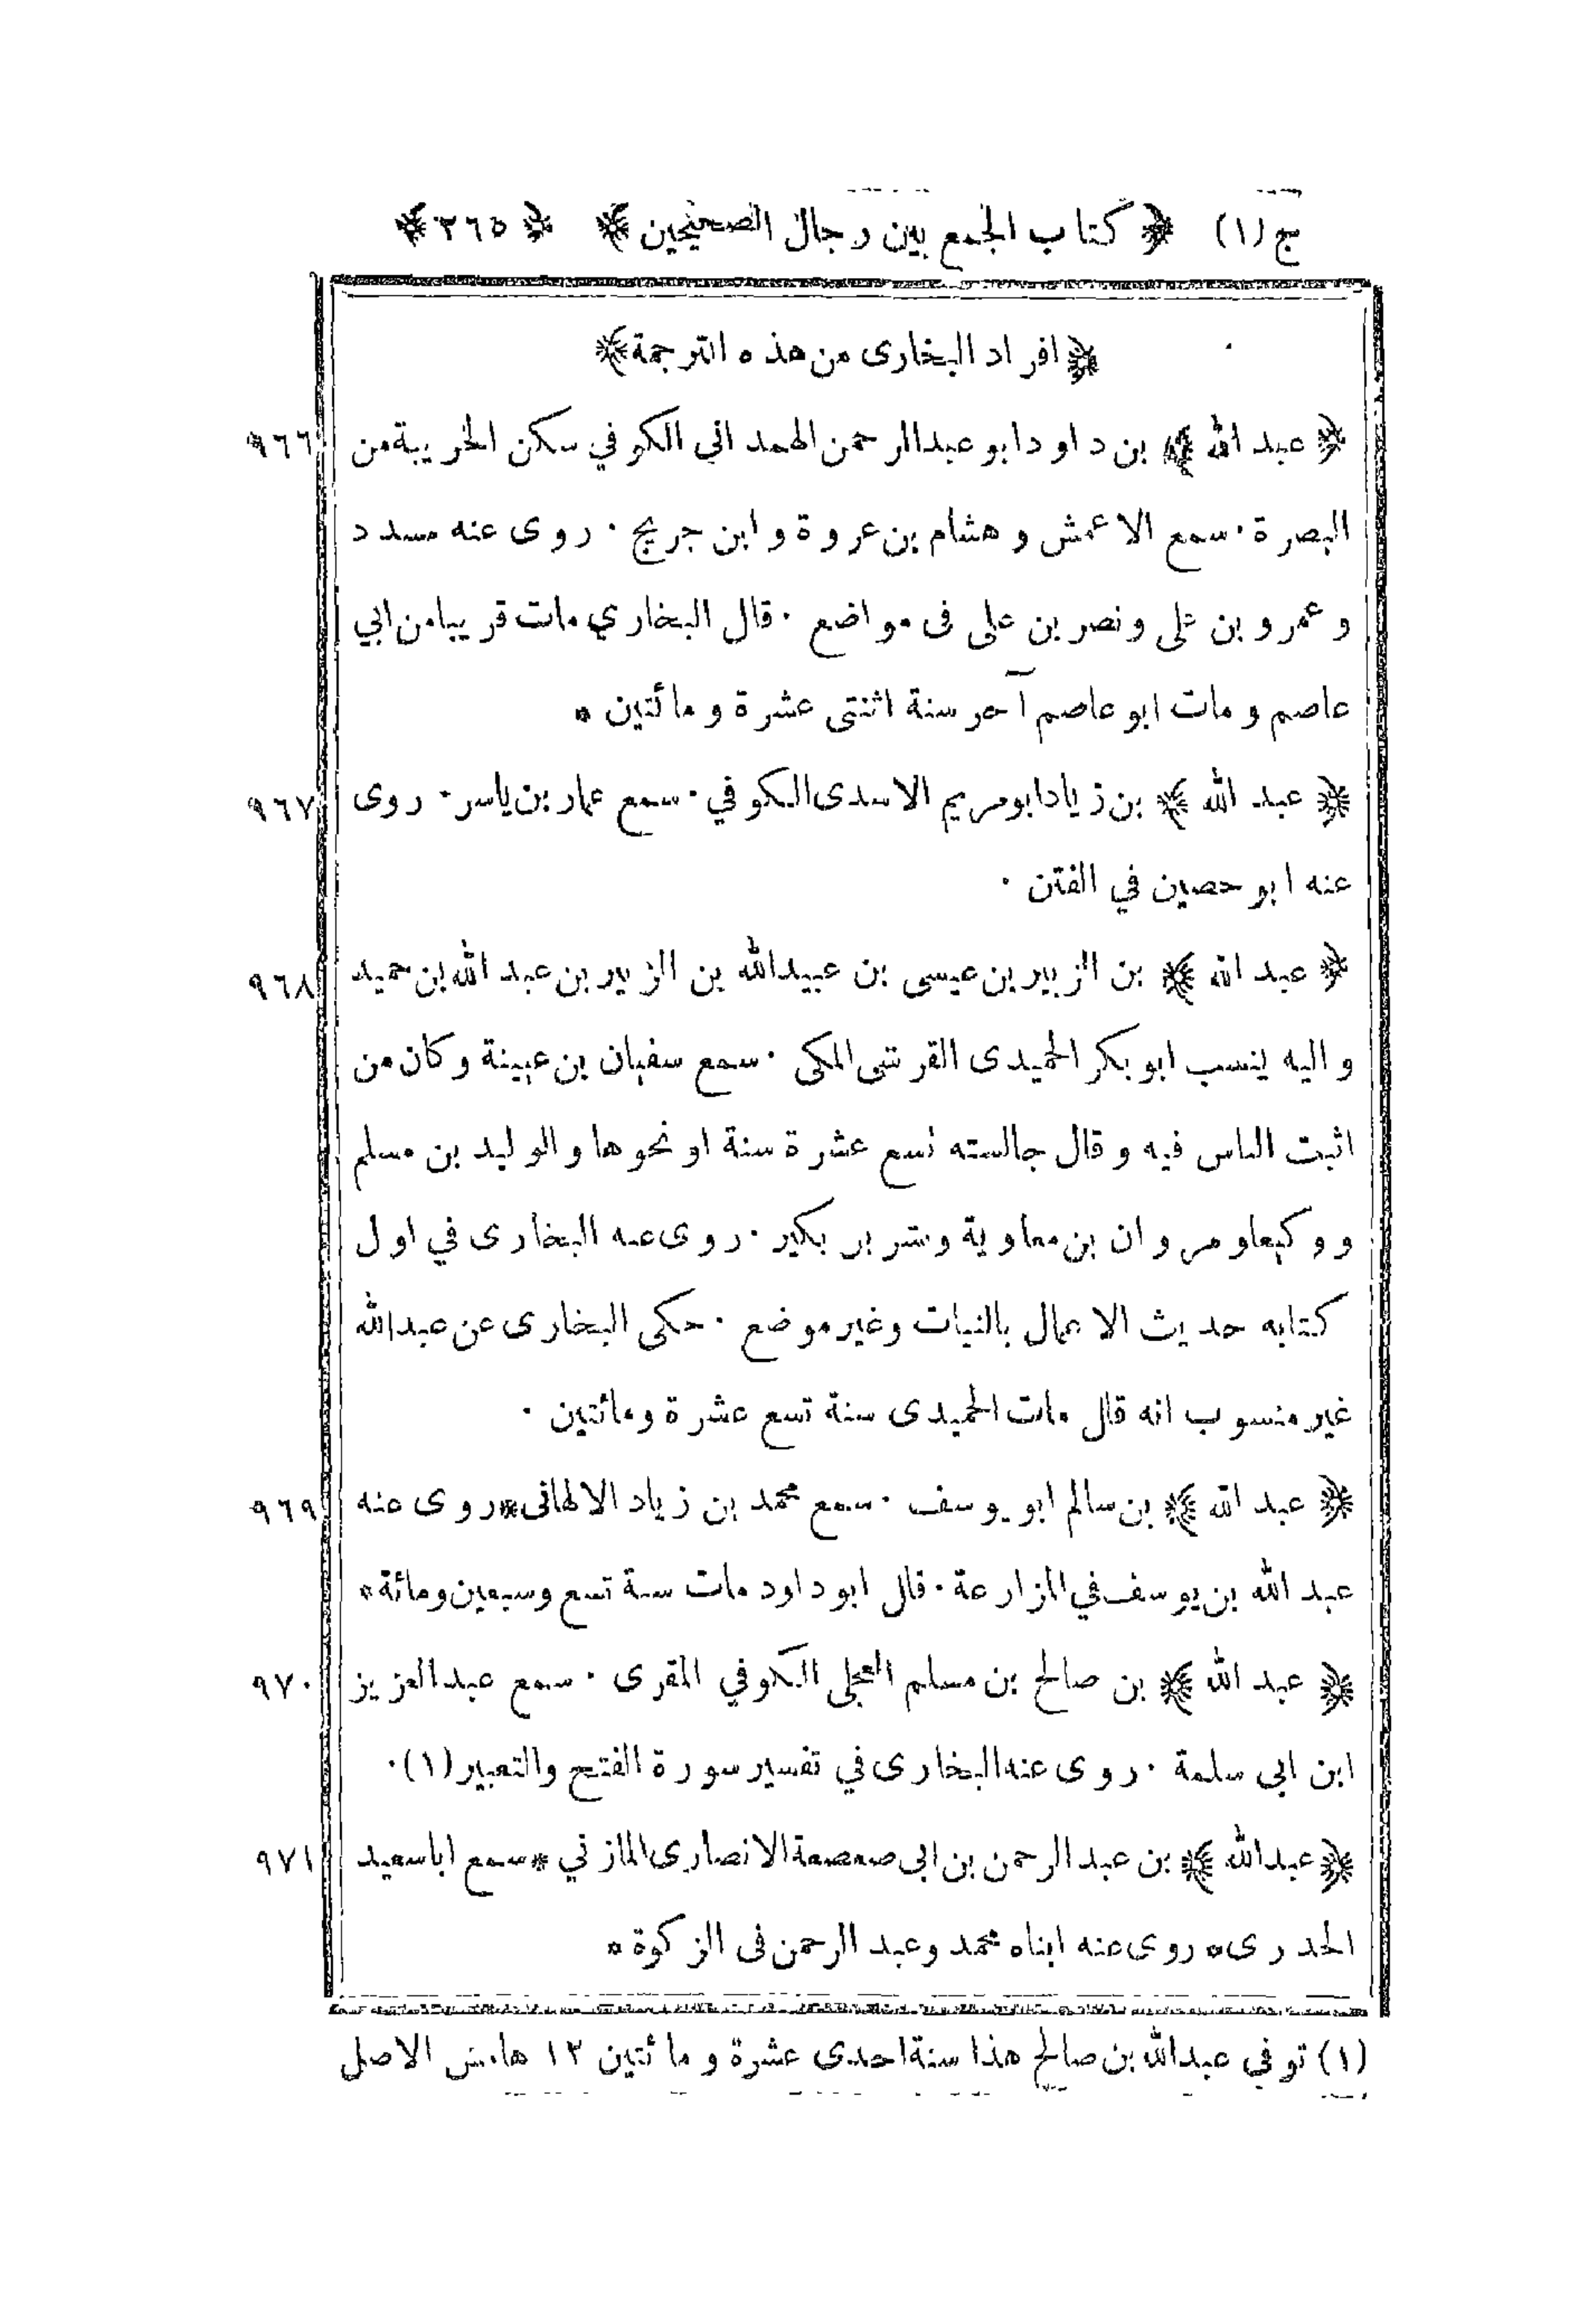 ج (١) ﴿ كتاب الجمع بين رجال الصحيحين ﴾ ﴿ ٢٦٥ ﴾
﴿ افراد البخارى من هذه الترجمة ﴾
٩٦٦ ﴿ عبد الله ﴾ بن داود ابو عبد الرحمن الهمداني الكوفي سكن الخريبة من
البصرة · سمع الاعمش وهشام بن عروة وابن جريج · روى عنه مسدد
وعمرو بن على ونصر بن على فى مواضع · قال البخاري مات قريبا من ابي
عاصم ومات ابو عاصم آخر سنة اثنتى عشرة ومائتين *
٩٦٧ ﴿ عبد الله ﴾ بن زياد ابو مريم الاسدى الكوفي · سمع عمار بن ياسر · روى
عنه ابو حصين في الفتن ·
٩٦٨ ﴿ عبد الله ﴾ بن الزبير بن عيسى بن عبيد الله بن الزبير بن عبد الله بن حميد
واليه ينسب ابو بكر الحميدى القرشى المكى · سمع سفيان بن عيينة وكان من
اثبت الناس فيه وقال جالسته تسع عشرة سنة او نحوها والوليد بن مسلم
ووكيعا ومروان بن معاوية وبشر بن بكير · روى عنه البخارى في اول
كتابه حديث الاعمال بالنيات وغير موضع · حكى البخارى عن عبد الله
غير منسوب انه قال مات الحميدى سنة تسع عشرة ومائتين ·
٩٦٩ ﴿ عبد الله ﴾ بن سالم ابو يوسف · سمع محمد بن زياد الالهانى * روى عنه
عبد الله بن يوسف في المزارعة · قال ابو داود مات سنة تسع وسبعين ومائة *
٩٧٠ ﴿ عبد الله ﴾ بن صالح بن مسلم العجلى الكوفي المقرى · سمع عبد العزيز
ابن ابى سلمة · روى عنه البخارى في تفسير سورة الفتح والتعبير (١) ·
٩٧١ ﴿ عبد الله ﴾ بن عبد الرحمن بن ابى صعصعة الانصارى المازني * سمع ابا سعيد
الخدرى * روى عنه ابناه محمد وعبد الرحمن فى الزكوة *
(١) توفي عبد الله بن صالح هذا سنة احدى عشرة ومائتين ١٢ هامش الاصل